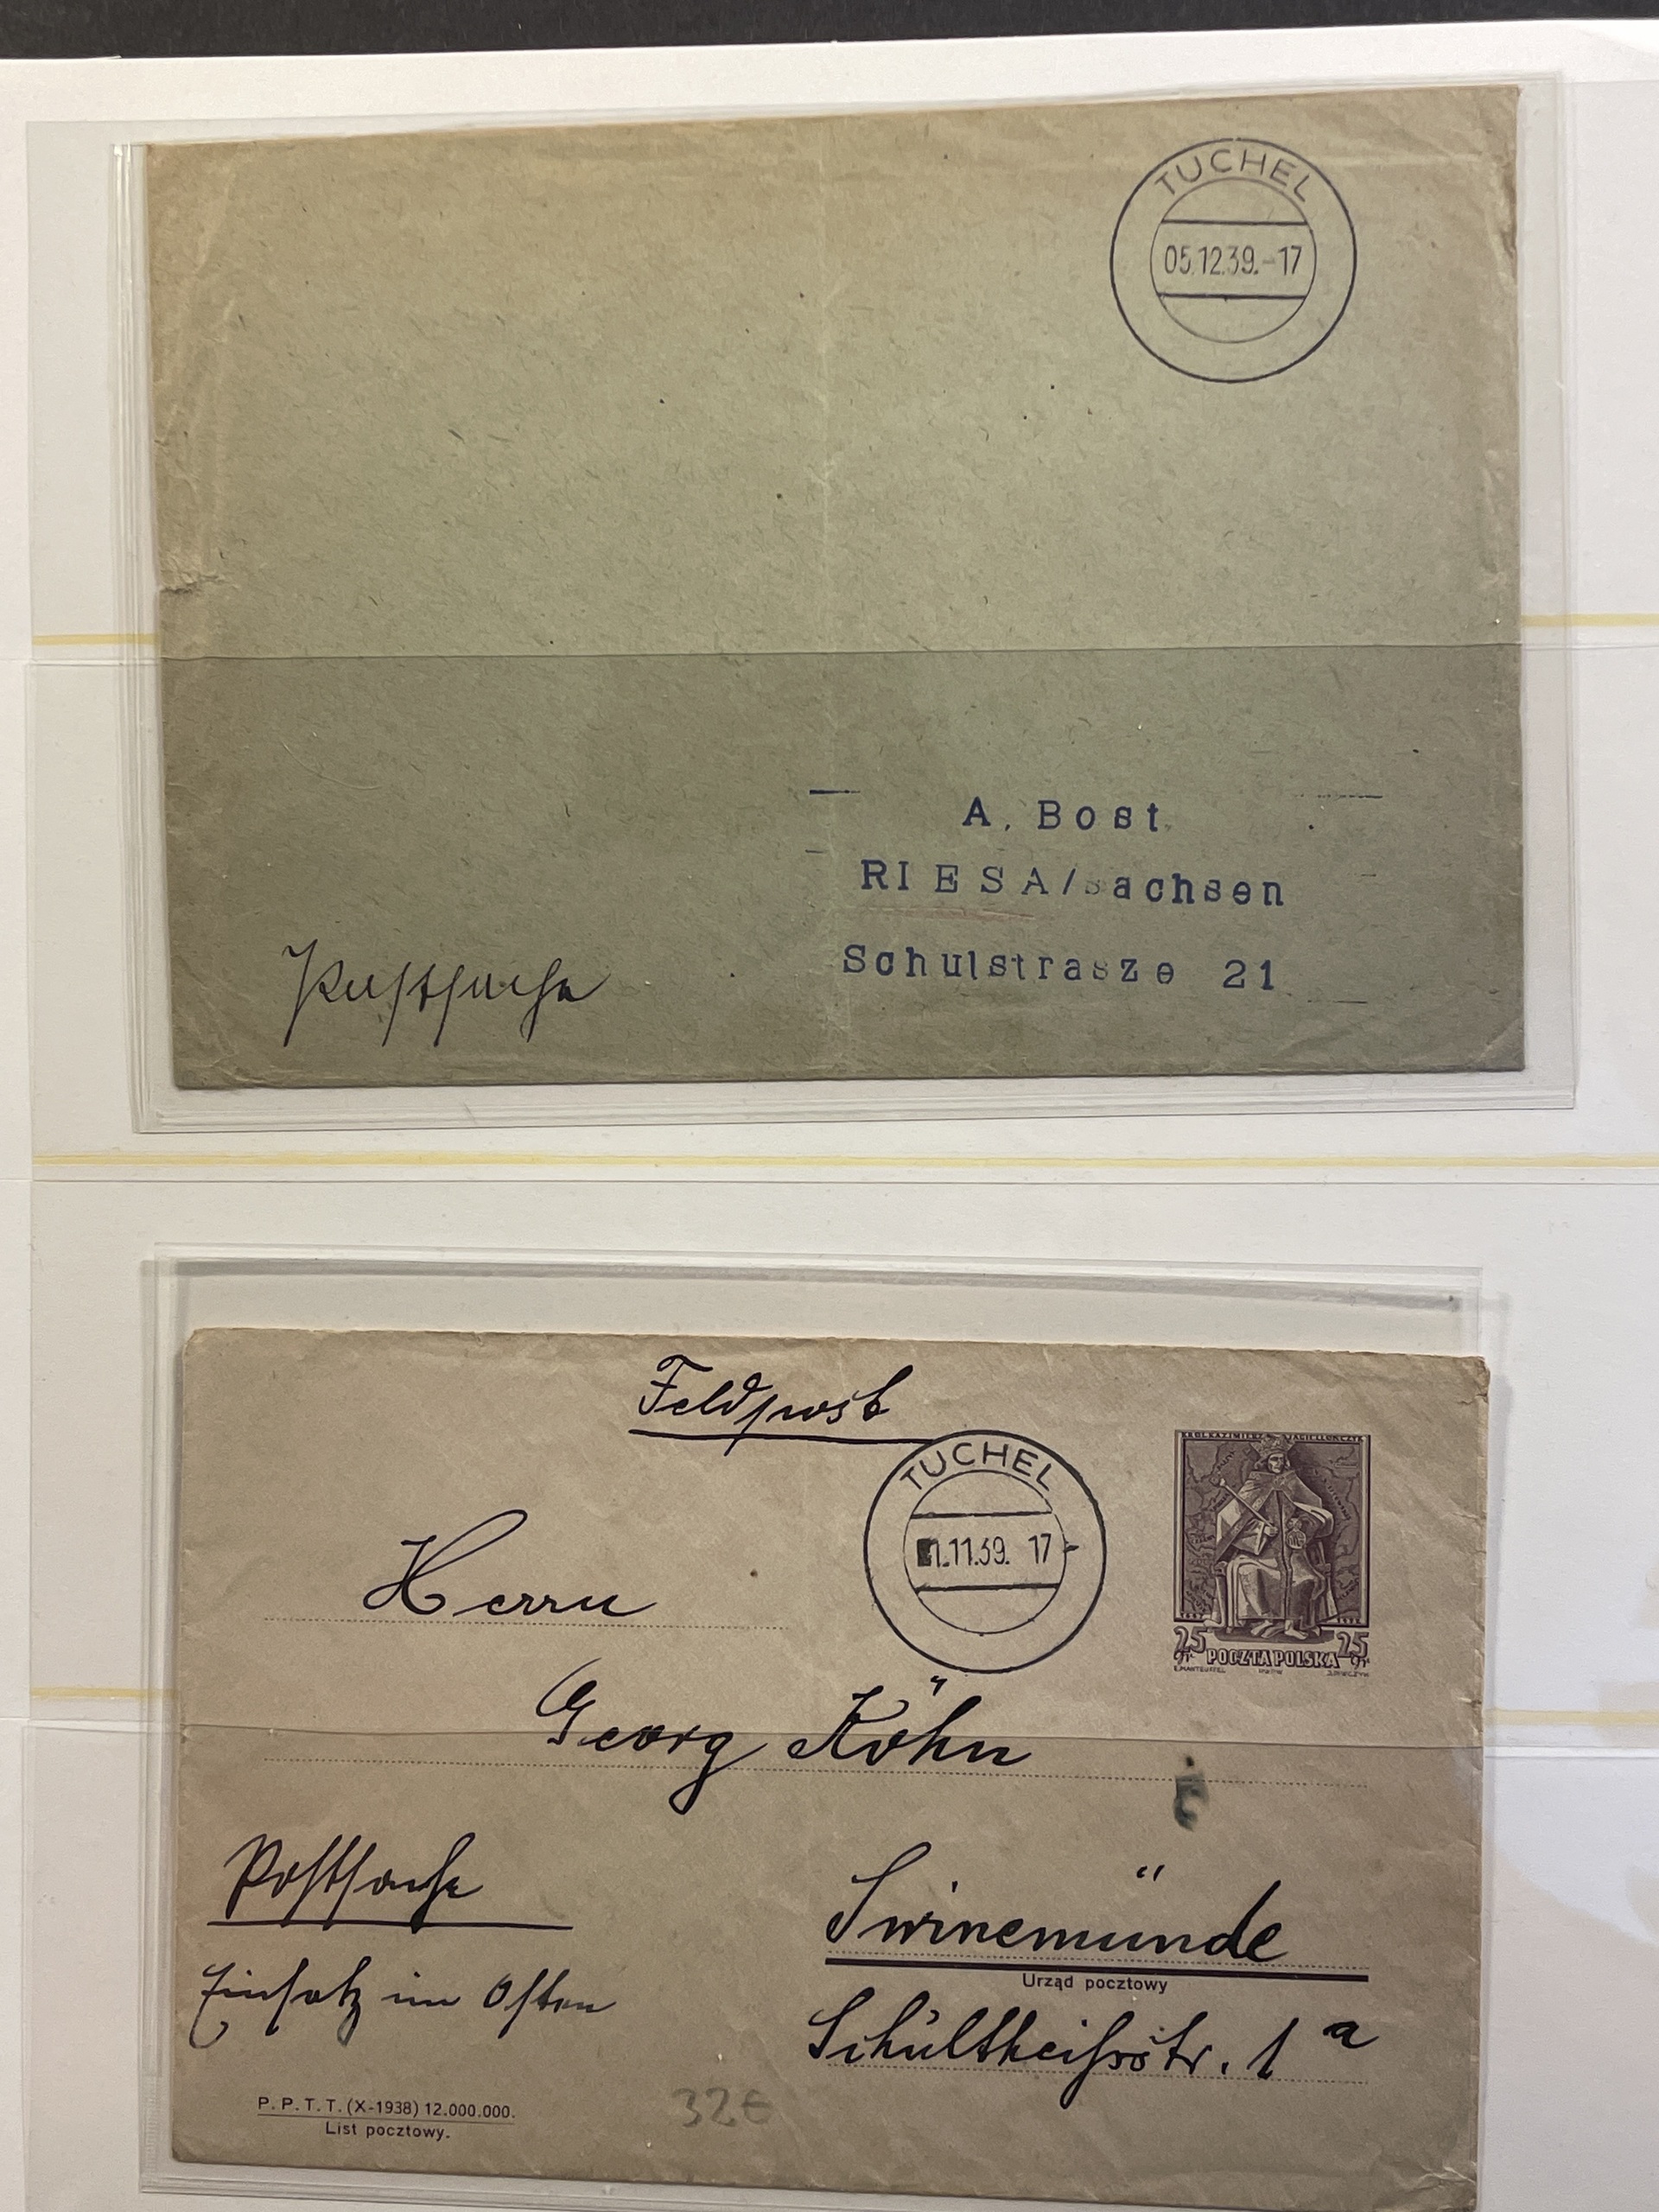 TUCHEL
05.12.39.-17
A. Bost
RIESA/Sachsen
Schulstrasze 21
Postsache
Feldpost
TUCHEL
1.11.39. 17
KROL KAZIMIERZ JAGIELLONCZYK
25 gr POCZTA POLSKA 25 gr
Herrn
Georg Köhn
Postsache
Swinemünde
Urząd pocztowy
Einsatz im Osten
Schultheißstr. 1a
P. P. T. T. (X-1938) 12.000.000.
List pocztowy.
32€